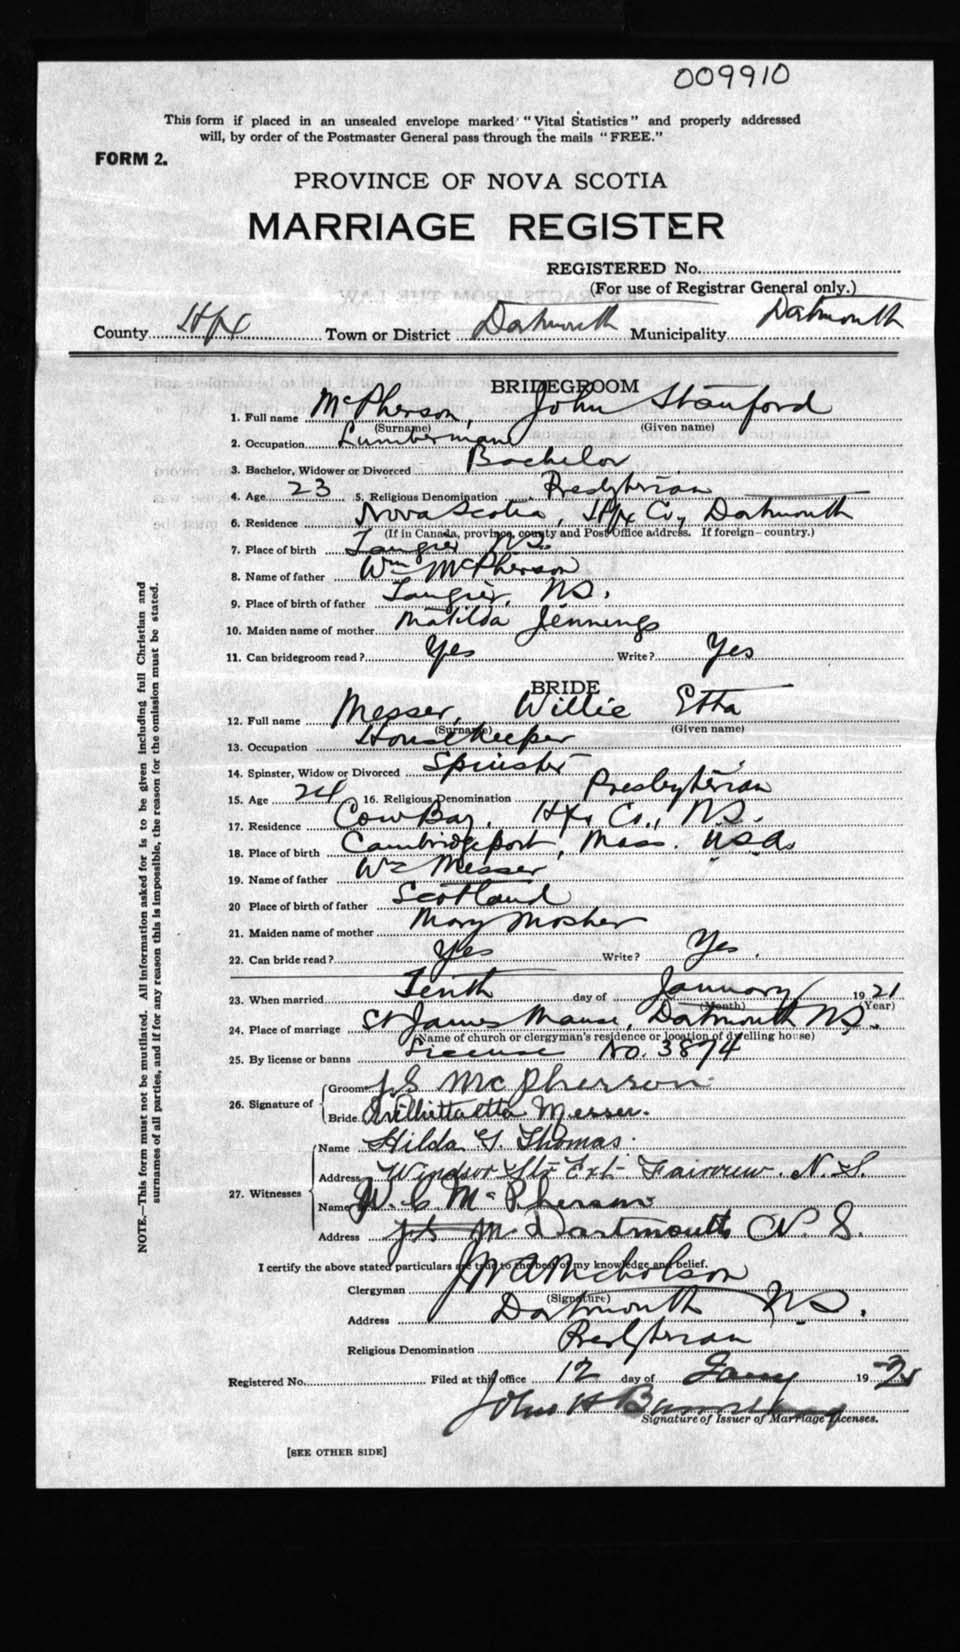 009910
This form if placed in an unsealed envelope marked "Vital Statistics" and properly addressed
will, by order of the Postmaster General pass through the mails "FREE."
FORM 2.
PROVINCE OF NOVA SCOTIA
MARRIAGE REGISTER
REGISTERED No.
(For use of Registrar General only.)
County Hfx Town or District Dartmouth Municipality Dartmouth
BRIDEGROOM
1. Full name McPherson, John Stanford
(Surname) (Given name)
2. Occupation Lumberman
3. Bachelor, Widower or Divorced Bachelor
4. Age 23 5. Religious Denomination Presbyterian
6. Residence Nova Scotia, Hfx Co, Dartmouth
(If in Canada, province, county and Post Office address. If foreign- country.)
7. Place of birth Tangier NS.
8. Name of father Wm McPherson
9. Place of birth of father Tangier, NS.
10. Maiden name of mother Matilda Jennings
11. Can bridegroom read? Yes Write? Yes
BRIDE
12. Full name Messer, Willie Etta
(Surname) (Given name)
13. Occupation Housekeeper
14. Spinster, Widow or Divorced Spinster
15. Age 24 16. Religious Denomination Presbyterian
17. Residence Cow Bay, Hfx Co., NS.
18. Place of birth Cambridgeport, Mass. USA.
19. Name of father Wm Messer
20 Place of birth of father Scotland
21. Maiden name of mother Mary Mosher
22. Can bride read? Yes Write? Yes.
23. When married Tenth day of January 1921
(Month) (Year)
24. Place of marriage St James Manse, Dartmouth NS.
(Name of church or clergyman's residence or location of dwelling house)
25. By license or banns License No. 3894
26. Signature of Groom J S McPherson
Bride Etta Messer.
27. Witnesses
Name Hilda G. Thomas.
Address Windsor St. Ext. Fairview. N. S.
Name W. C McPherson
Address Dartmouth N. S.
I certify the above stated particulars are true to the best of my knowledge and belief.
Clergyman Nicholson
(Signature)
Address Dartmouth NS.
Religious Denomination Presbyterian
Registered No. Filed at this office 12 day of Jany 192
John H
Signature of Issuer of Marriage Licenses.
[SEE OTHER SIDE]
NOTE.—This form must not be mutilated. All information asked for is to be given including full Christian and
surnames of all parties, and if for any reason this is impossible, the reason for the omission must be stated.